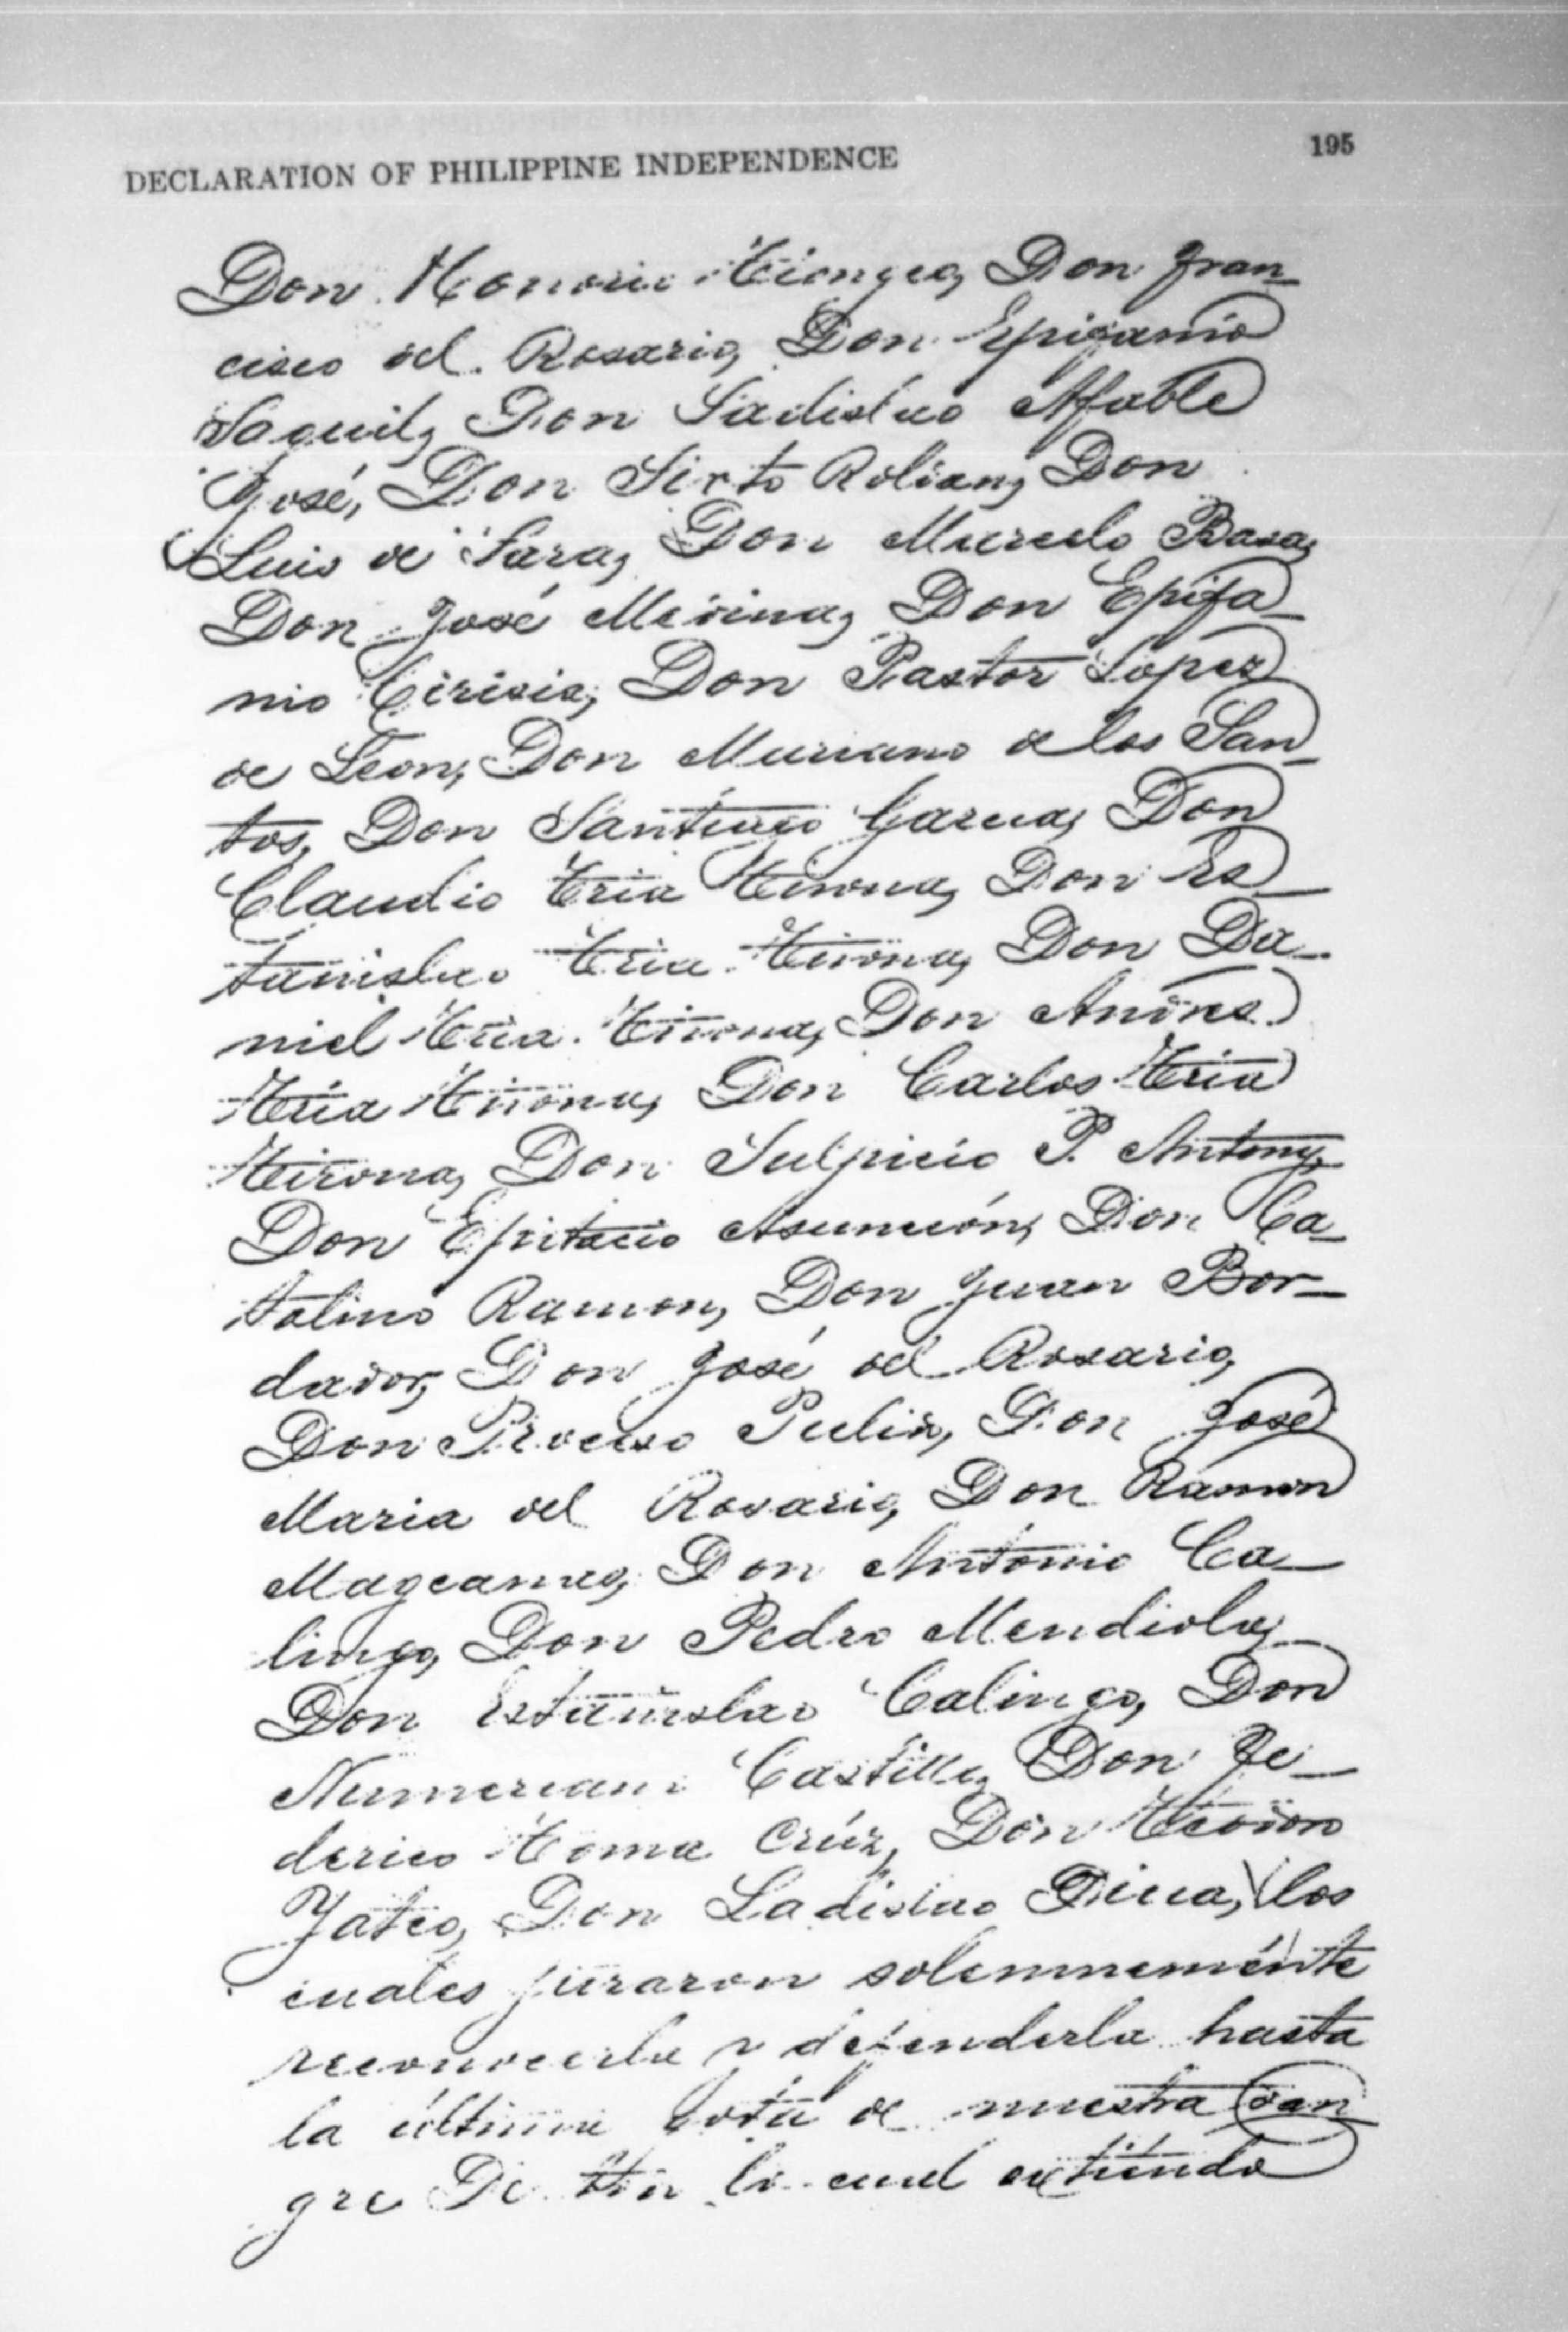 DECLARATION OF PHILIPPINE INDEPENDENCE 195
Don Honorio Tiongco, Don Fran-
cisco del Rosario, Don Epifanio
Saguil, Don Ladislao Afable
José, Don Sixto Roldan, Don
Luis de Lara, Don Marcelo Basa,
Don José Medina, Don Epifa-
nio Crisia, Don Pastor Lopez
de Leon, Don Mariano de los San-
tos, Don Santiago Garcia, Don
Claudio Tria Tirona, Don Es-
tanislao Tria Tirona, Don Da-
niel Tria Tirona, Don Andres
Tria Tirona, Don Carlos Tria
Tirona, Don Sulpicio P. Antony,
Don Epitacio Asunción, Don Ca-
talino Ramon, Don Juan Bor-
dador, Don José del Rosario,
Don Proceso Pulido, Don José
Maria del Rosario, Don Ramon
Magcamco, Don Antonio Ca-
lingo, Don Pedro Mendiola,
Don Estanislao Calingo, Don
Numeriano Castillo, Don Fe-
derico Toma Crúz, Don Teodoro
Yatco, Don Ladislao Diwa, los
cuales juraron solemnemente
reconocerla y defenderla hasta
la última gota de nuestra san-
gre. De todo lo cual extiendo